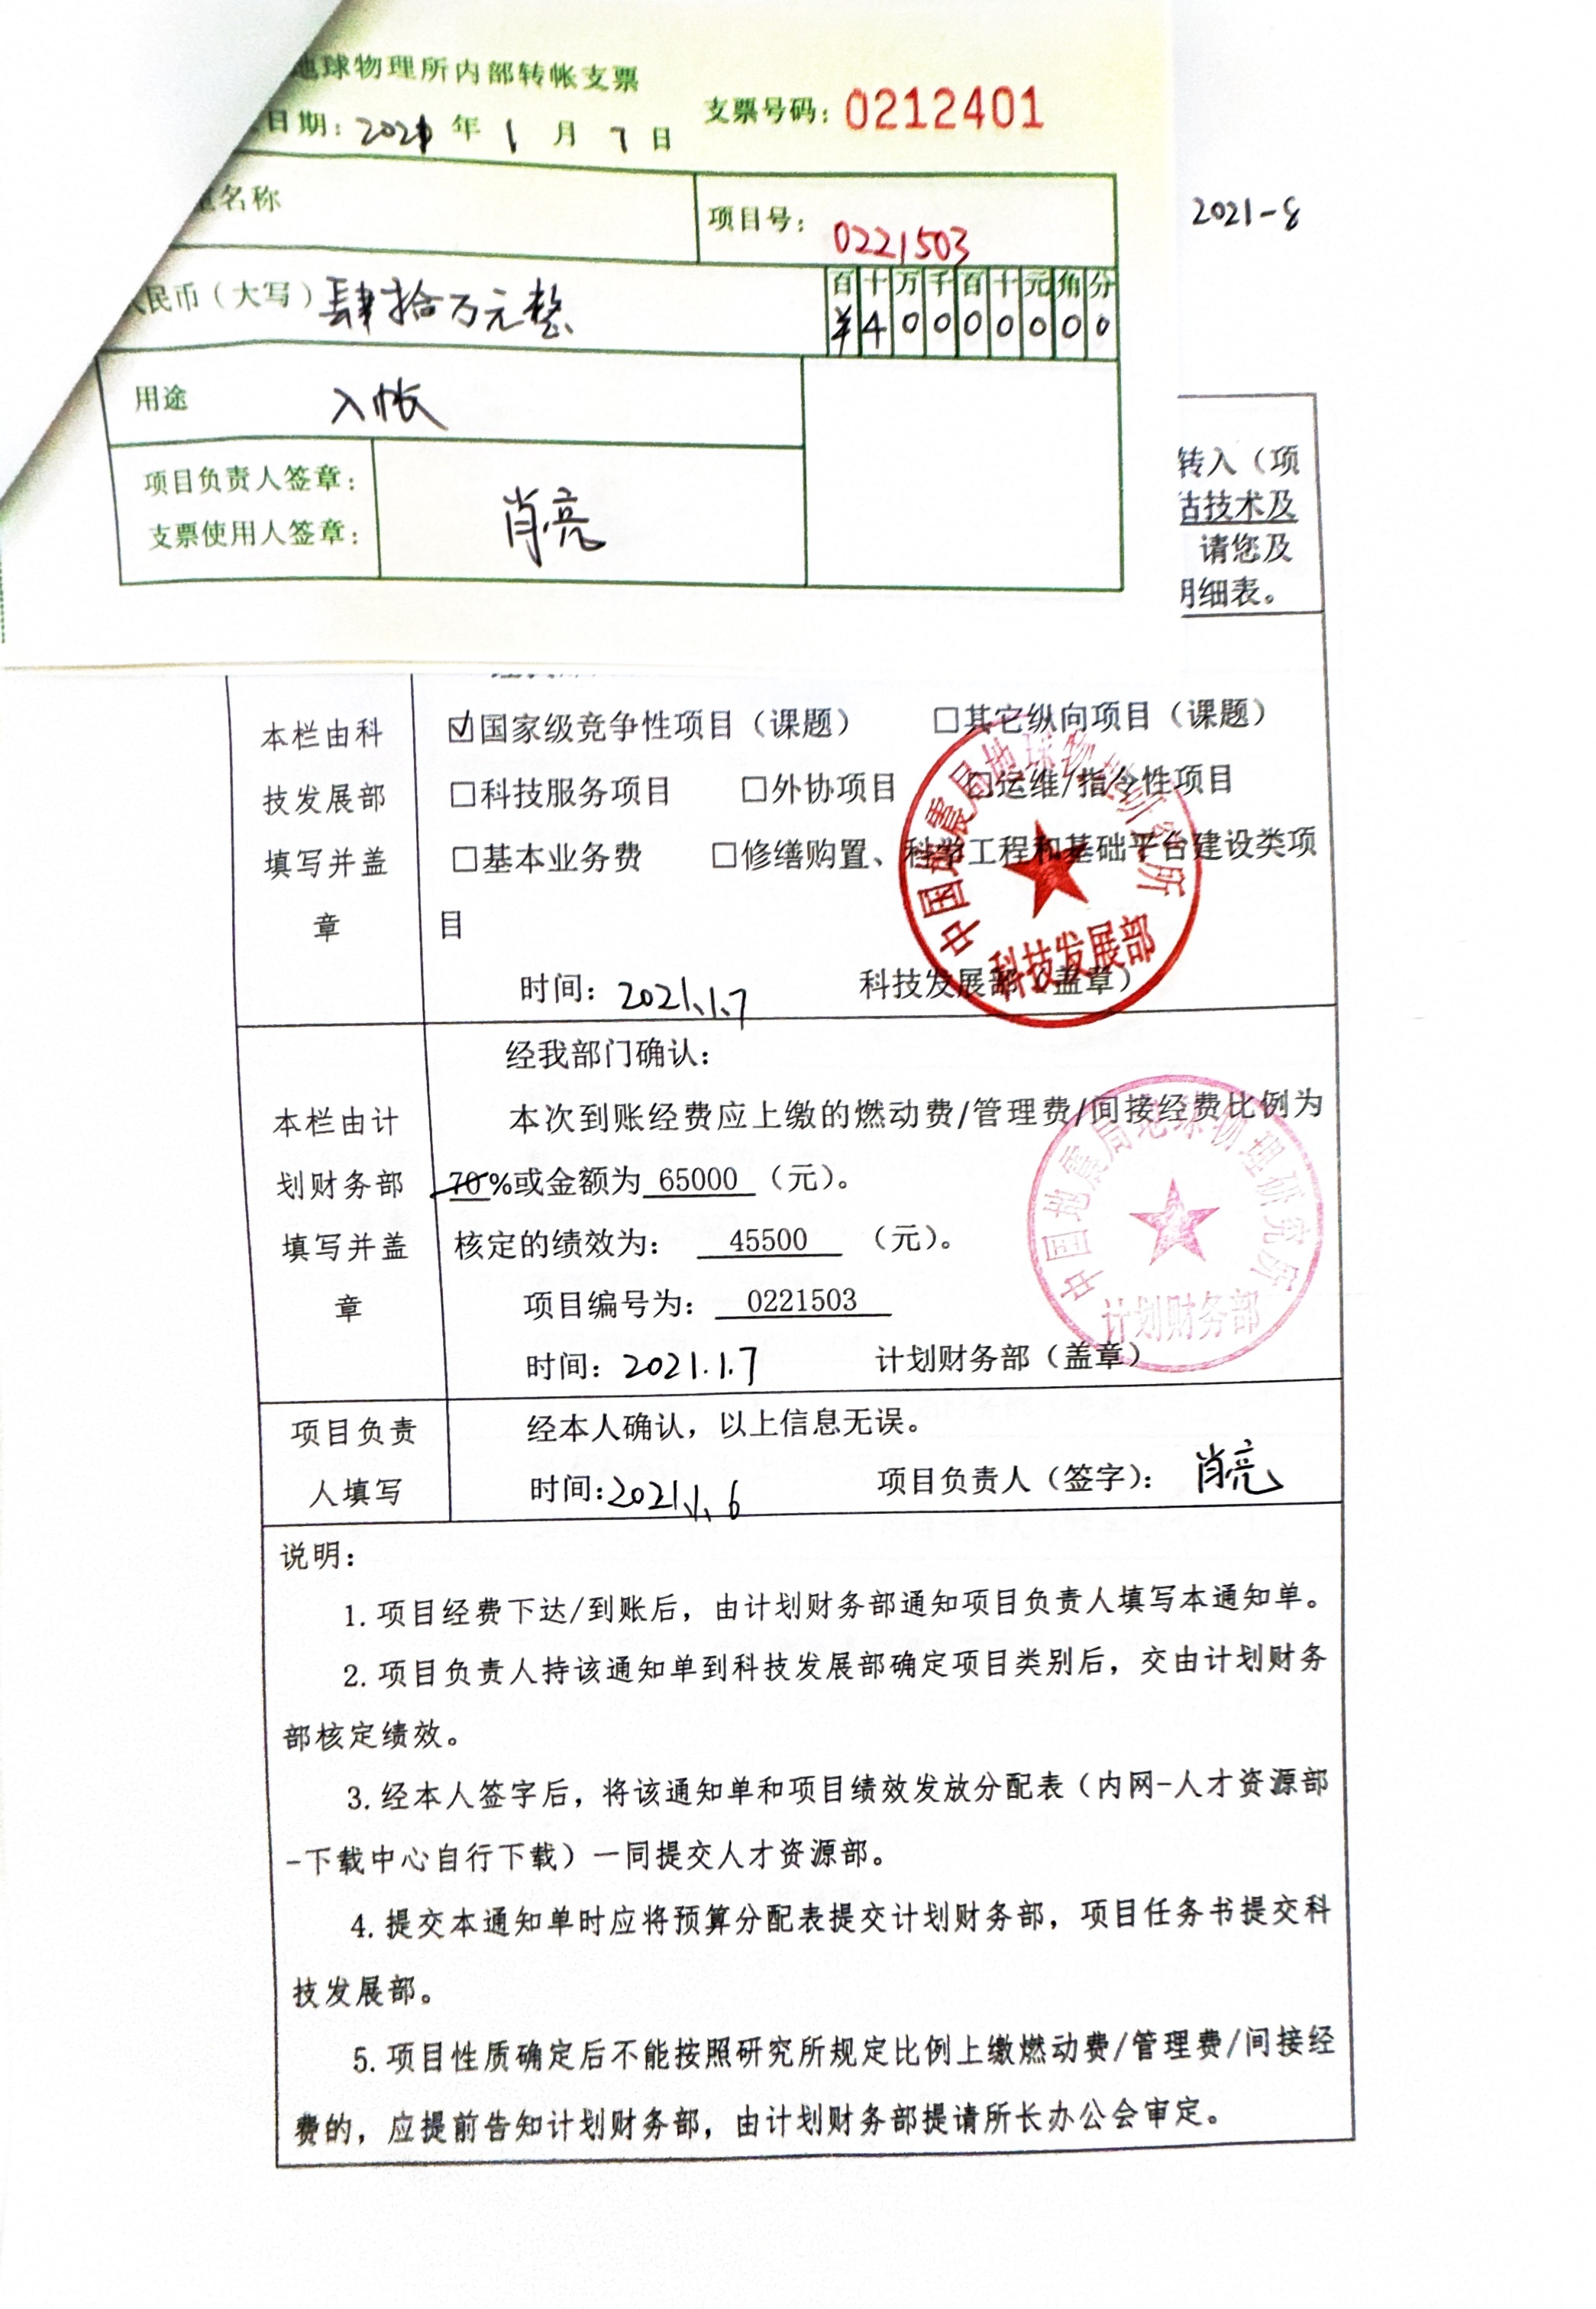 地球物理所内部转帐支票
日期：2021年1月7日
支票号码：0212401
2021-8
名称
项目号：0221503
民币（大写）肆拾万元整
百十万千百十元角分
¥40000000
用途 入帐
项目负责人签章：
支票使用人签章：
肖亮
转入（项
估技术及
请您及
细表。
本栏由科技发展部填写并盖章
☑国家级竞争性项目（课题） □其它纵向项目（课题）
□科技服务项目 □外协项目 □运维/指令性项目
□基本业务费 □修缮购置、科学工程和基础平台建设类项
目
时间：2021.1.7 科技发展部（盖章）
中国地震局地球物理研究所
科技发展部
本栏由计划财务部填写并盖章
经我部门确认：
本次到账经费应上缴的燃动费/管理费/间接经费比例为
70%或金额为65000（元）。
核定的绩效为：45500（元）。
项目编号为：0221503
时间：2021.1.7 计划财务部（盖章）
中国地震局地球物理研究所
计划财务部
项目负责人填写
经本人确认，以上信息无误。
时间：2021.1.6 项目负责人（签字）：肖亮
说明：
1.项目经费下达/到账后，由计划财务部通知项目负责人填写本通知单。
2.项目负责人持该通知单到科技发展部确定项目类别后，交由计划财务
部核定绩效。
3.经本人签字后，将该通知单和项目绩效发放分配表（内网-人才资源部
-下载中心自行下载）一同提交人才资源部。
4.提交本通知单时应将预算分配表提交计划财务部，项目任务书提交科
技发展部。
5.项目性质确定后不能按照研究所规定比例上缴燃动费/管理费/间接经
费的，应提前告知计划财务部，由计划财务部提请所长办公会审定。